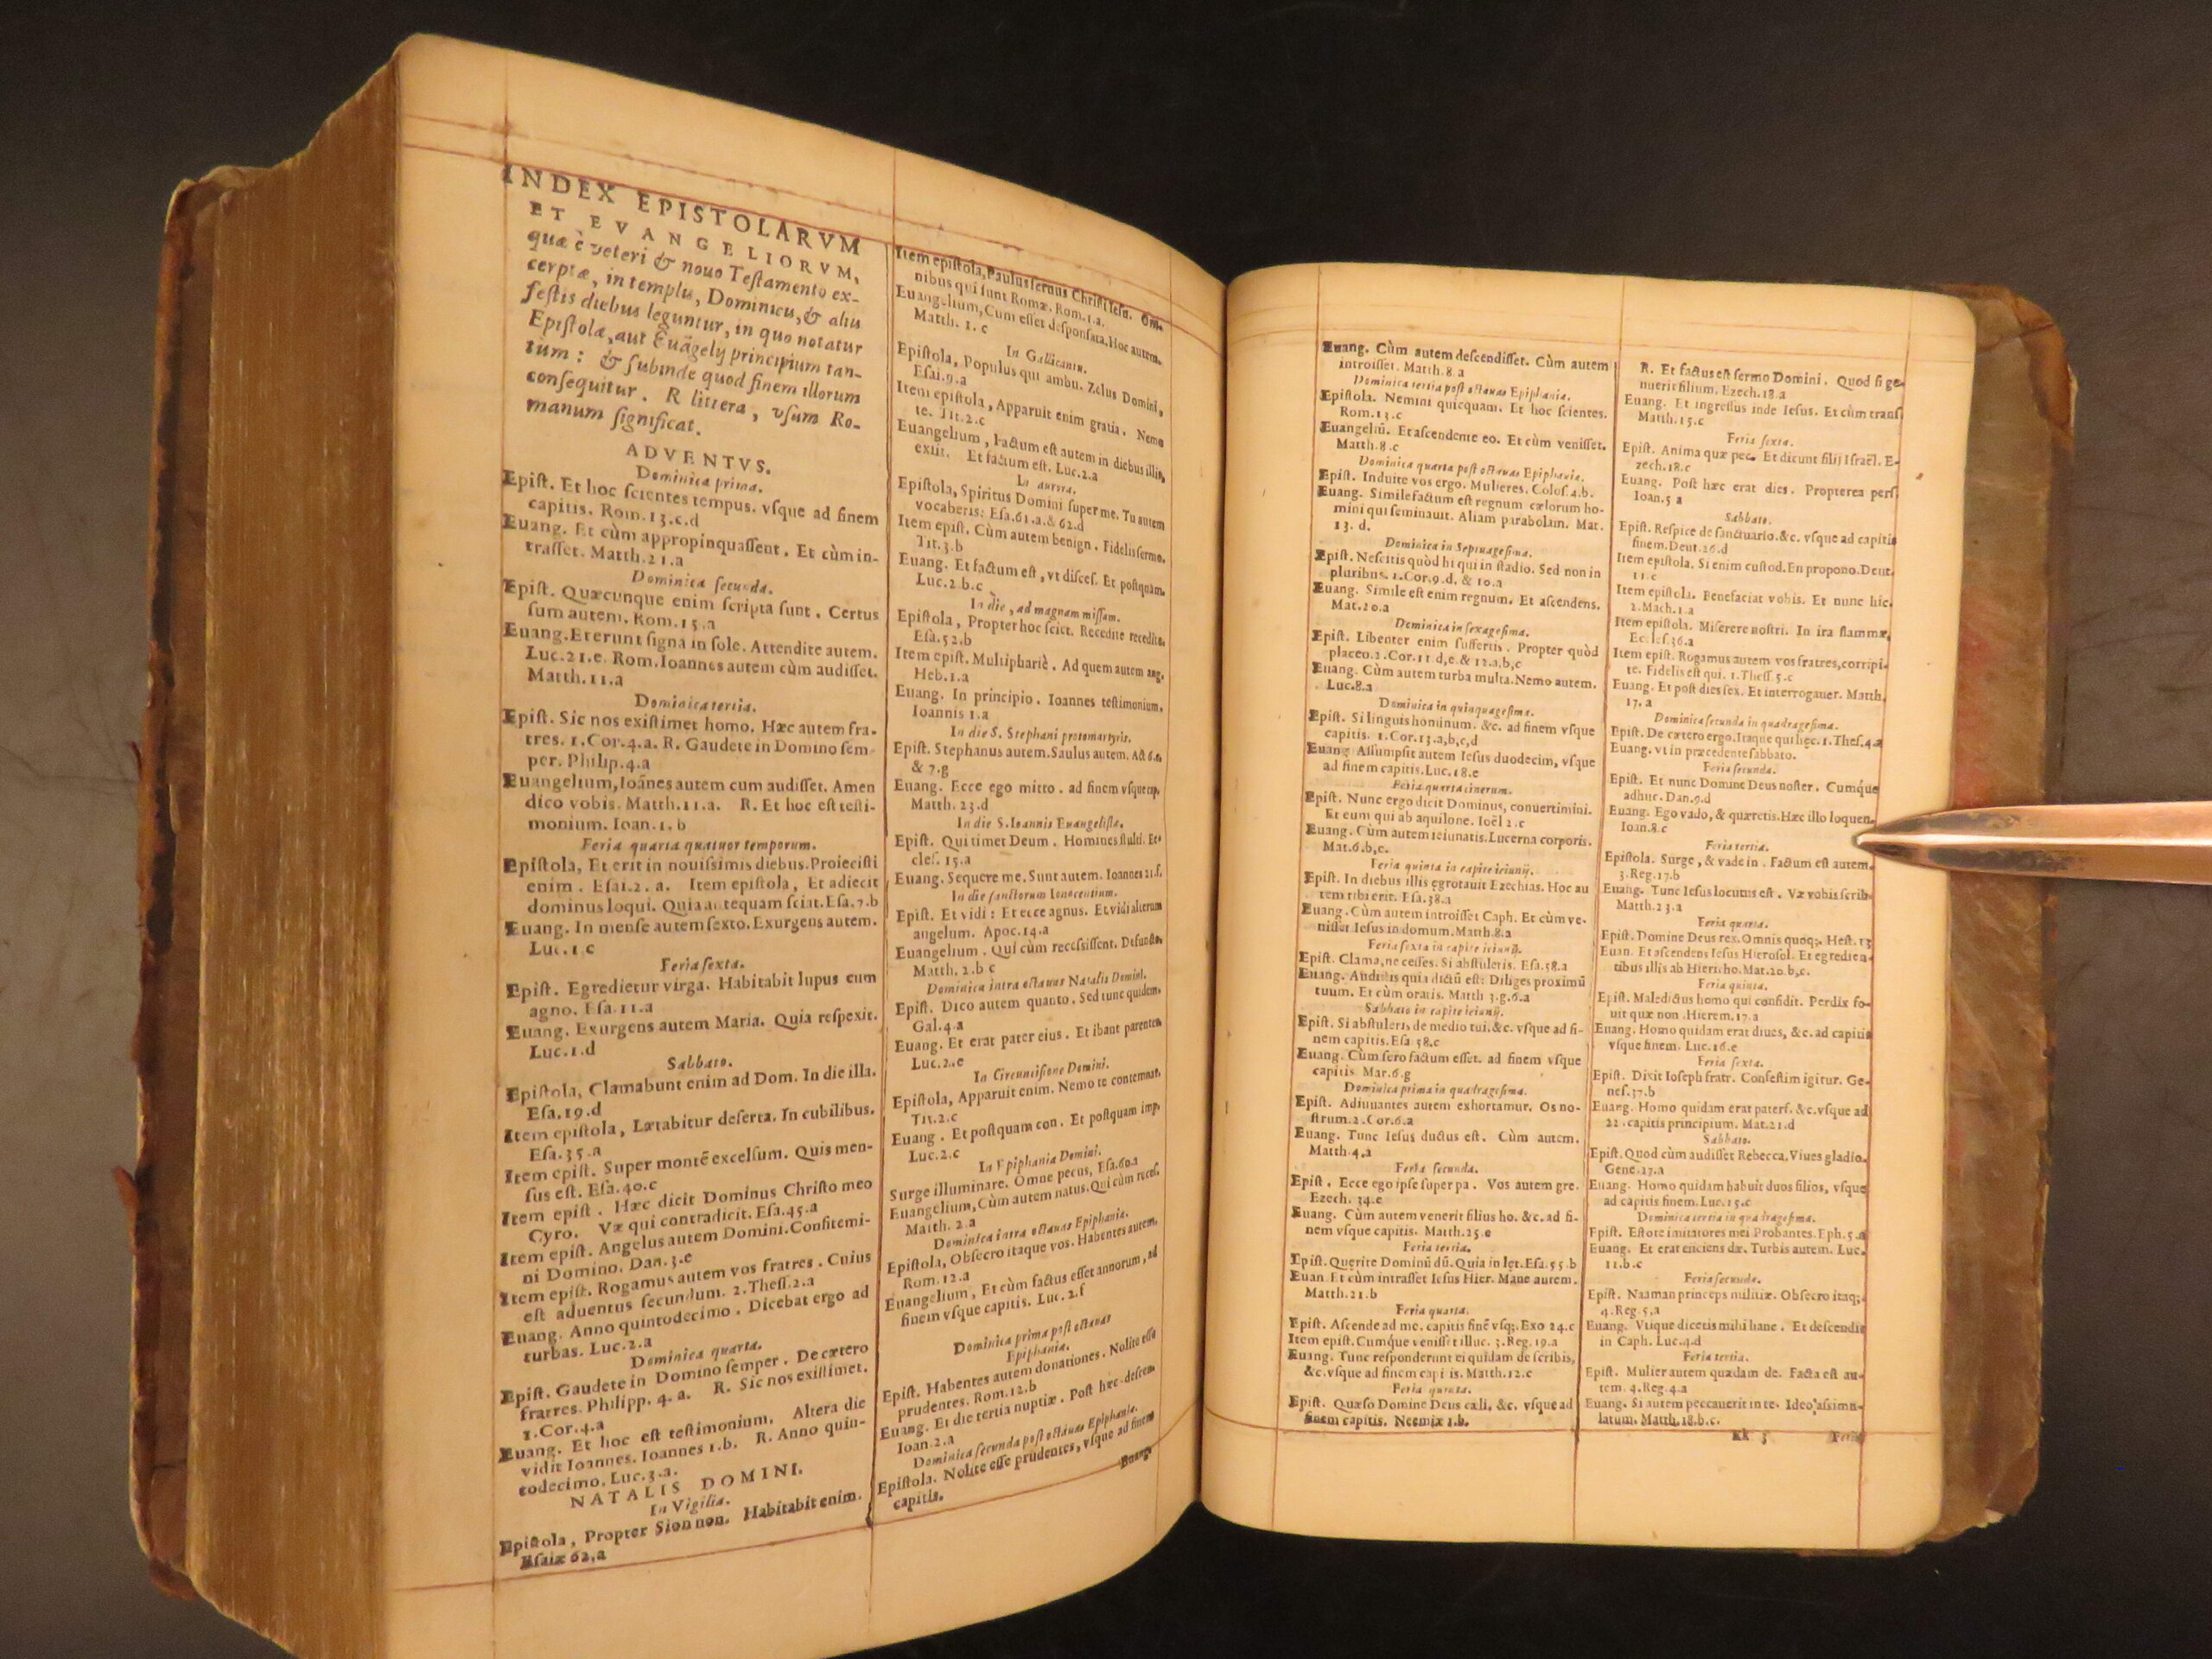 INDEX EPISTOLARVM
ET EVANGELIORVM,
quæ è veteri & nouo Teſtamento ex-
cerptæ, in templis, Dominicis, & aliis
feſtis diebus leguntur, in quo notatur
Epiſtolæ, aut Euãgelij principium tan-
tùm : & ſubinde quod finem illorum
conſequitur. R littera, vſum Ro-
manum ſignificat.
ADVENTVS.
Dominica prima.
Epiſt. Et hoc ſcientes tempus. vſque ad finem
capitis. Rom. 13.c.d
Euang. Et cùm appropinquaſſent. Et cùm in-
traſſet. Matth.21.a
Dominica ſecunda.
Epiſt. Quæcunque enim ſcripta ſunt. Certus
ſum autem. Rom.15.a
Euang. Et erunt ſigna in ſole. Attendite autem.
Luc.21.e. Rom. Ioannes autem cùm audiſſet.
Matth.11.a
Dominica tertia.
Epiſt. Sic nos exiſtimet homo. Hæc autem fra-
tres. 1.Cor.4.a. R. Gaudete in Domino ſem-
per. Philip.4.a
Euangelium, Ioãnes autem cum audiſſet. Amen
dico vobis. Matth.11.a. R. Et hoc eſt teſti-
monium. Ioan.1.b
Feria quarta quatuor temporum.
Epiſtola, Et erit in nouiſsimis diebus. Proieciſti
enim. Eſai.2.a. Item epiſtola, Et adiecit
dominus loqui. Quia antequam ſciat. Eſa.7.b
Euang. In menſe autem ſexto. Exurgens autem.
Luc.1.c
Feria ſexta.
Epiſt. Egredietur virga. Habitabit lupus cum
agno. Eſa.11.a
Euang. Exurgens autem Maria. Quia reſpexit.
Luc.1.d
Sabbato.
Epiſtola, Clamabunt enim ad Dom. In die illa.
Eſa.19.d
Item epiſtola, Lætabitur deſerta. In cubilibus.
Eſa.35.a
Item epiſt. Super montẽ excelſum. Quis men-
ſus eſt. Eſa.40.c
Item epiſt. Hæc dicit Dominus Chriſto meo
Cyro. Væ qui contradicit. Eſa.45.a
Item epiſt. Angelus autem Domini. Confitemi-
ni Domino. Dan.3.e
Item epiſt. Rogamus autem vos fratres. Cuius
eſt aduentus ſecundum. 2.Theſſ.2.a
Euang. Anno quintodecimo. Dicebat ergo ad
turbas. Luc.2.a
Dominica quarta.
Epiſt. Gaudete in Domino ſemper. De cætero
fratres. Philipp. 4. a. R. Sic nos exiſtimet.
1.Cor.4.a
Euang. Et hoc eſt teſtimonium. Altera die
vidit Ioannes. Ioannes 1.b. R. Anno quin-
todecimo. Luc.3.a.
NATALIS DOMINI.
In Vigilia.
Epiſtola, Propter Sion non. Habitabit enim.
Eſaiæ 62.a
Item epiſtola, Paulus ſeruus Chriſti Ieſu. Om-
nibus qui ſunt Romæ. Rom.1.a.
Euangelium, Cum eſſet deſponſata. Hoc autem.
Matth. 1. c
In Gallicantu.
Epiſtola, Populus qui ambu. Zelus Domini,
Eſai.9.a
Item epiſtola, Apparuit enim gratia. Nemo
te. Tit.2.c
Euangelium, Factum eſt autem in diebus illis,
exiit. Et factum eſt. Luc.2.a
In aurora.
Epiſtola, Spiritus Domini ſuper me. Tu autem
vocaberis: Eſa.61.a.& 62.d
Item epiſt. Cùm autem benign. Fidelis ſermo.
Tit.3.b
Euang. Et factum eſt, vt diſceſ. Et poſtquam.
Luc.2.b.c
In die, ad magnam miſſam.
Epiſtola, Propter hoc ſciet. Recedite recedite.
Eſa.52.b
Item epiſt. Multiphariè. Ad quem autem ang.
Heb.1.a
Euang. In principio. Ioannes teſtimonium.
Ioannis 1.a
In die S. Stephani protomartyris.
Epiſt. Stephanus autem. Saulus autem. Act 6.a.
& 7.g
Euang. Ecce ego mitto. ad finem vſque cap.
Matth. 23.d
In die S. Ioannis Euangeliſtæ.
Epiſt. Qui timet Deum. Homines ſtulti. Ec-
cleſ. 15.a
Euang. Sequere me. Sunt autem. Ioannes 21.f.
In die ſanctorum Innocentium.
Epiſt. Et vidi: Et ecce agnus. Et vidi alterum
angelum. Apoc.14.a
Euangelium. Qui cùm receſsiſſent. Defuncto.
Matth. 2.b c
Dominica intra octauas Natalis Domini.
Epiſt. Dico autem quanto. Sed tunc quidem.
Gal.4.a
Euang. Et erat pater eius. Et ibant parentes
Luc.2.e
In Circunciſione Domini.
Epiſtola, Apparuit enim. Nemo te contemnat.
Tit.2.c
Euang. Et poſtquam con. Et poſtquam imp.
Luc.2.c
In Epiphania Domini.
Surge illuminare. Omne pecus, Eſa.60.a
Euangelium, Cùm autem natus. Qui cùm receſ.
Matth. 2.a
Dominica intra octauas Epiphaniæ.
Epiſtola, Obſecro itaque vos. Habentes autem.
Rom.12.a
Euangelium, Et cùm factus eſſet annorum, ad
finem vſque capitis. Luc. 2.f
Dominica prima poſt octauas
Epiphaniæ.
Epiſt. Habentes autem donationes. Nolite eſſe
prudentes. Rom.12.b
Euang. Et die tertia nuptiæ. Poſt hæc deſcen.
Ioan.2.a
Dominica ſecunda poſt octauas Epiphaniæ.
Epiſtola. Nolite eſſe prudentes, vſque ad finem
capitis.
Euang.
Euang. Cùm autem deſcendiſſet. Cùm autem
introiſſet. Matth.8.a
Dominica tertia poſt octauas Epiphaniæ.
Epiſtola. Nemini quicquam. Et hoc ſcientes.
Rom.13.c
Euangeliũ. Et aſcendente eo. Et cùm veniſſet.
Matth.8.c
Dominica quarta poſt octauas Epiphaniæ.
Epiſt. Induite vos ergo. Mulieres. Coloſ.4.b.
Euang. Simile factum eſt regnum cælorum ho-
mini qui ſeminauit. Aliam parabolam. Mat.
13. d.
Dominica in Septuageſima.
Epiſt. Neſcitis quòd hi qui in ſtadio. Sed non in
pluribus. 1.Cor.9.d. & 10.a
Euang. Simile eſt enim regnum. Et aſcendens.
Mat.20.a
Dominica in ſexageſima.
Epiſt. Libenter enim ſuffertis. Propter quòd
placeo. 2.Cor.11.d,e.& 12.a,b,c
Euang. Cùm autem turba multa. Nemo autem.
Luc.8.a
Dominica in quinquageſima.
Epiſt. Si linguis hominum. &c. ad finem vſque
capitis. 1.Cor.13.a,b,c,d
Euang Aſſumpſit autem Ieſus duodecim, vſque
ad finem capitis. Luc.18.e
Feria quarta cinerum.
Epiſt. Nunc ergo dicit Dominus, conuertimini.
Et eum qui ab aquilone. Ioël 2.c
Euang. Cùm autem ieiunatis. Lucerna corporis.
Mat.6.b,c.
Feria quinta in capite ieiunij.
Epiſt. In diebus illis ęgrotauit Ezechias. Hoc au
tem tibi erit. Eſa.38.a
Euang. Cùm autem introiſſet Caph. Et cùm ve-
niſſet Ieſus in domum. Matth.8.a
Feria ſexta in capite ieiunij.
Epiſt. Clama, ne ceſſes. Si abſtuleris. Eſa.58.a
Euang. Audiſtis quia dictũ eſt: Diliges proximũ
tuum. Et cùm oratis. Matth 3.g.6.a
Sabbato in capite ieiunij.
Epiſt. Si abſtuleris de medio tui. &c. vſque ad fi-
nem capitis. Eſa.58.c
Euang. Cùm ſero factum eſſet. ad finem vſque
capitis. Mar.6.g
Dominica prima in quadrageſima.
Epiſt. Adiuuantes autem exhortamur. Os no-
ſtrum. 2.Cor.6.a
Euang. Tunc Ieſus ductus eſt. Cùm autem.
Matth.4.a
Feria ſecunda.
Epiſt. Ecce ego ipſe ſuper pa. Vos autem gre.
Ezech. 34.e
Euang. Cùm autem venerit filius ho. &c. ad fi-
nem vſque capitis. Matth.25.e
Feria tertia.
Epiſt. Quęrite Dominũ dũ. Quia in lęt. Eſa.55.b
Euan. Et cùm intraſſet Ieſus Hier. Mane autem.
Matth.21.b
Feria quarta.
Epiſt. Aſcende ad me. capitis finẽ vſq;. Exo 24.c
Item epiſt. Cumq́ue veniſſet illuc. 3.Reg.19.a
Euang. Tunc reſponderunt ei quidam de ſcribis,
&c. vſque ad finem capitis. Matth.12.c
Feria quinta.
Epiſt. Quæſo Domine Deus cæli, &c. vſque ad
finem capitis. Neemiæ 1.b.
R. Et factus eſt ſermo Domini. Quod ſi ge-
nuerit filium. Ezech.18.a
Euang. Et ingreſſus inde Ieſus. Et cùm tranſ
Matth.15.c
Feria ſexta.
Epiſt. Anima quæ pec. Et dicunt filij Iſraël. E-
zech.18.c
Euang. Poſt hæc erat dies. Propterea perſ.
Ioan.5 a
Sabbato.
Epiſt. Reſpice de ſanctuario. &c. vſque ad capitis
finem. Deut.26.d
Item epiſtola. Si enim cuſtod. En propono. Deut.
11.c
Item epiſtola. Benefaciat vobis. Et nunc hic.
2.Mach.1.a
Item epiſtola. Miſerere noſtri. In ira flammæ.
Eccleſ.36.a
Item epiſt. Rogamus autem vos fratres, corripi-
te. Fidelis eſt qui. 1.Theſſ.5.c
Euang. Et poſt dies ſex. Et interrogauer. Matth.
17. a
Dominica ſecunda in quadrageſima.
Epiſt. De cætero ergo. Itaque qui hęc. 1.Theſ.4.a
Euang. vt in præcedente ſabbato.
Feria ſecunda.
Epiſt. Et nunc Domine Deus noſter. Cumq́ue
adhuc. Dan.9.d
Euang. Ego vado, & quæretis. Hæc illo loquen.
Ioan.8.c
Feria tertia.
Epiſtola. Surge, & vade in. Factum eſt autem.
3.Reg.17.b
Euang. Tunc Ieſus locutus eſt. Væ vobis ſcrib.
Matth.23.a
Feria quarta.
Epiſt. Domine Deus rex. Omnis quoq;. Heſt.13
Euan. Et aſcendens Ieſus Hieroſol. Et egredien-
tibus illis ab Hiericho. Mat.20.b,c.
Feria quinta.
Epiſt. Maledictus homo qui confidit. Perdix fo-
uit quæ non. Hierem.17.a
Euang. Homo quidam erat diues, &c. ad capitis
vſque finem. Luc.16.e
Feria ſexta.
Epiſt. Dixit Ioſeph fratr. Confeſtim igitur. Ge-
neſ.37.b
Euang. Homo quidam erat paterf. &c. vſque ad
22. capitis principium. Mat.21.d
Sabbato.
Epiſt. Quod cùm audiſſet Rebecca. Viues gladio.
Gene.27.a
Euang. Homo quidam habuit duos filios, vſque
ad capitis finem. Luc.15.c
Dominica tertia in quadrageſima.
Epiſt. Eſtote imitatores mei Probantes. Eph.5.a
Euang. Et erat eiiciens dæ. Turbis autem. Luc.
11.b.c
Feria ſecunda.
Epiſt. Naaman princeps militiæ. Obſecro itaq;.
4.Reg.5,a
Euang. Vtique dicetis mihi hanc. Et deſcendit
in Caph. Luc.4.d
Feria tertia.
Epiſt. Mulier autem quædam de. Facta eſt au-
tem. 4.Reg.4.a
Euang. Si autem peccauerit in te. Ideo aſsimi-
latum. Matth.18.b.c.
KK 3
Feria